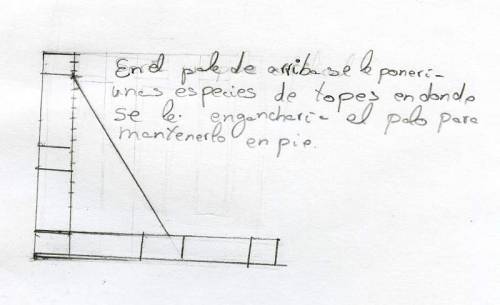 En el palo de arriba se le poneri-
unas especies de topes en donde
se le engancharia el palo para
mantenerlo en pie.